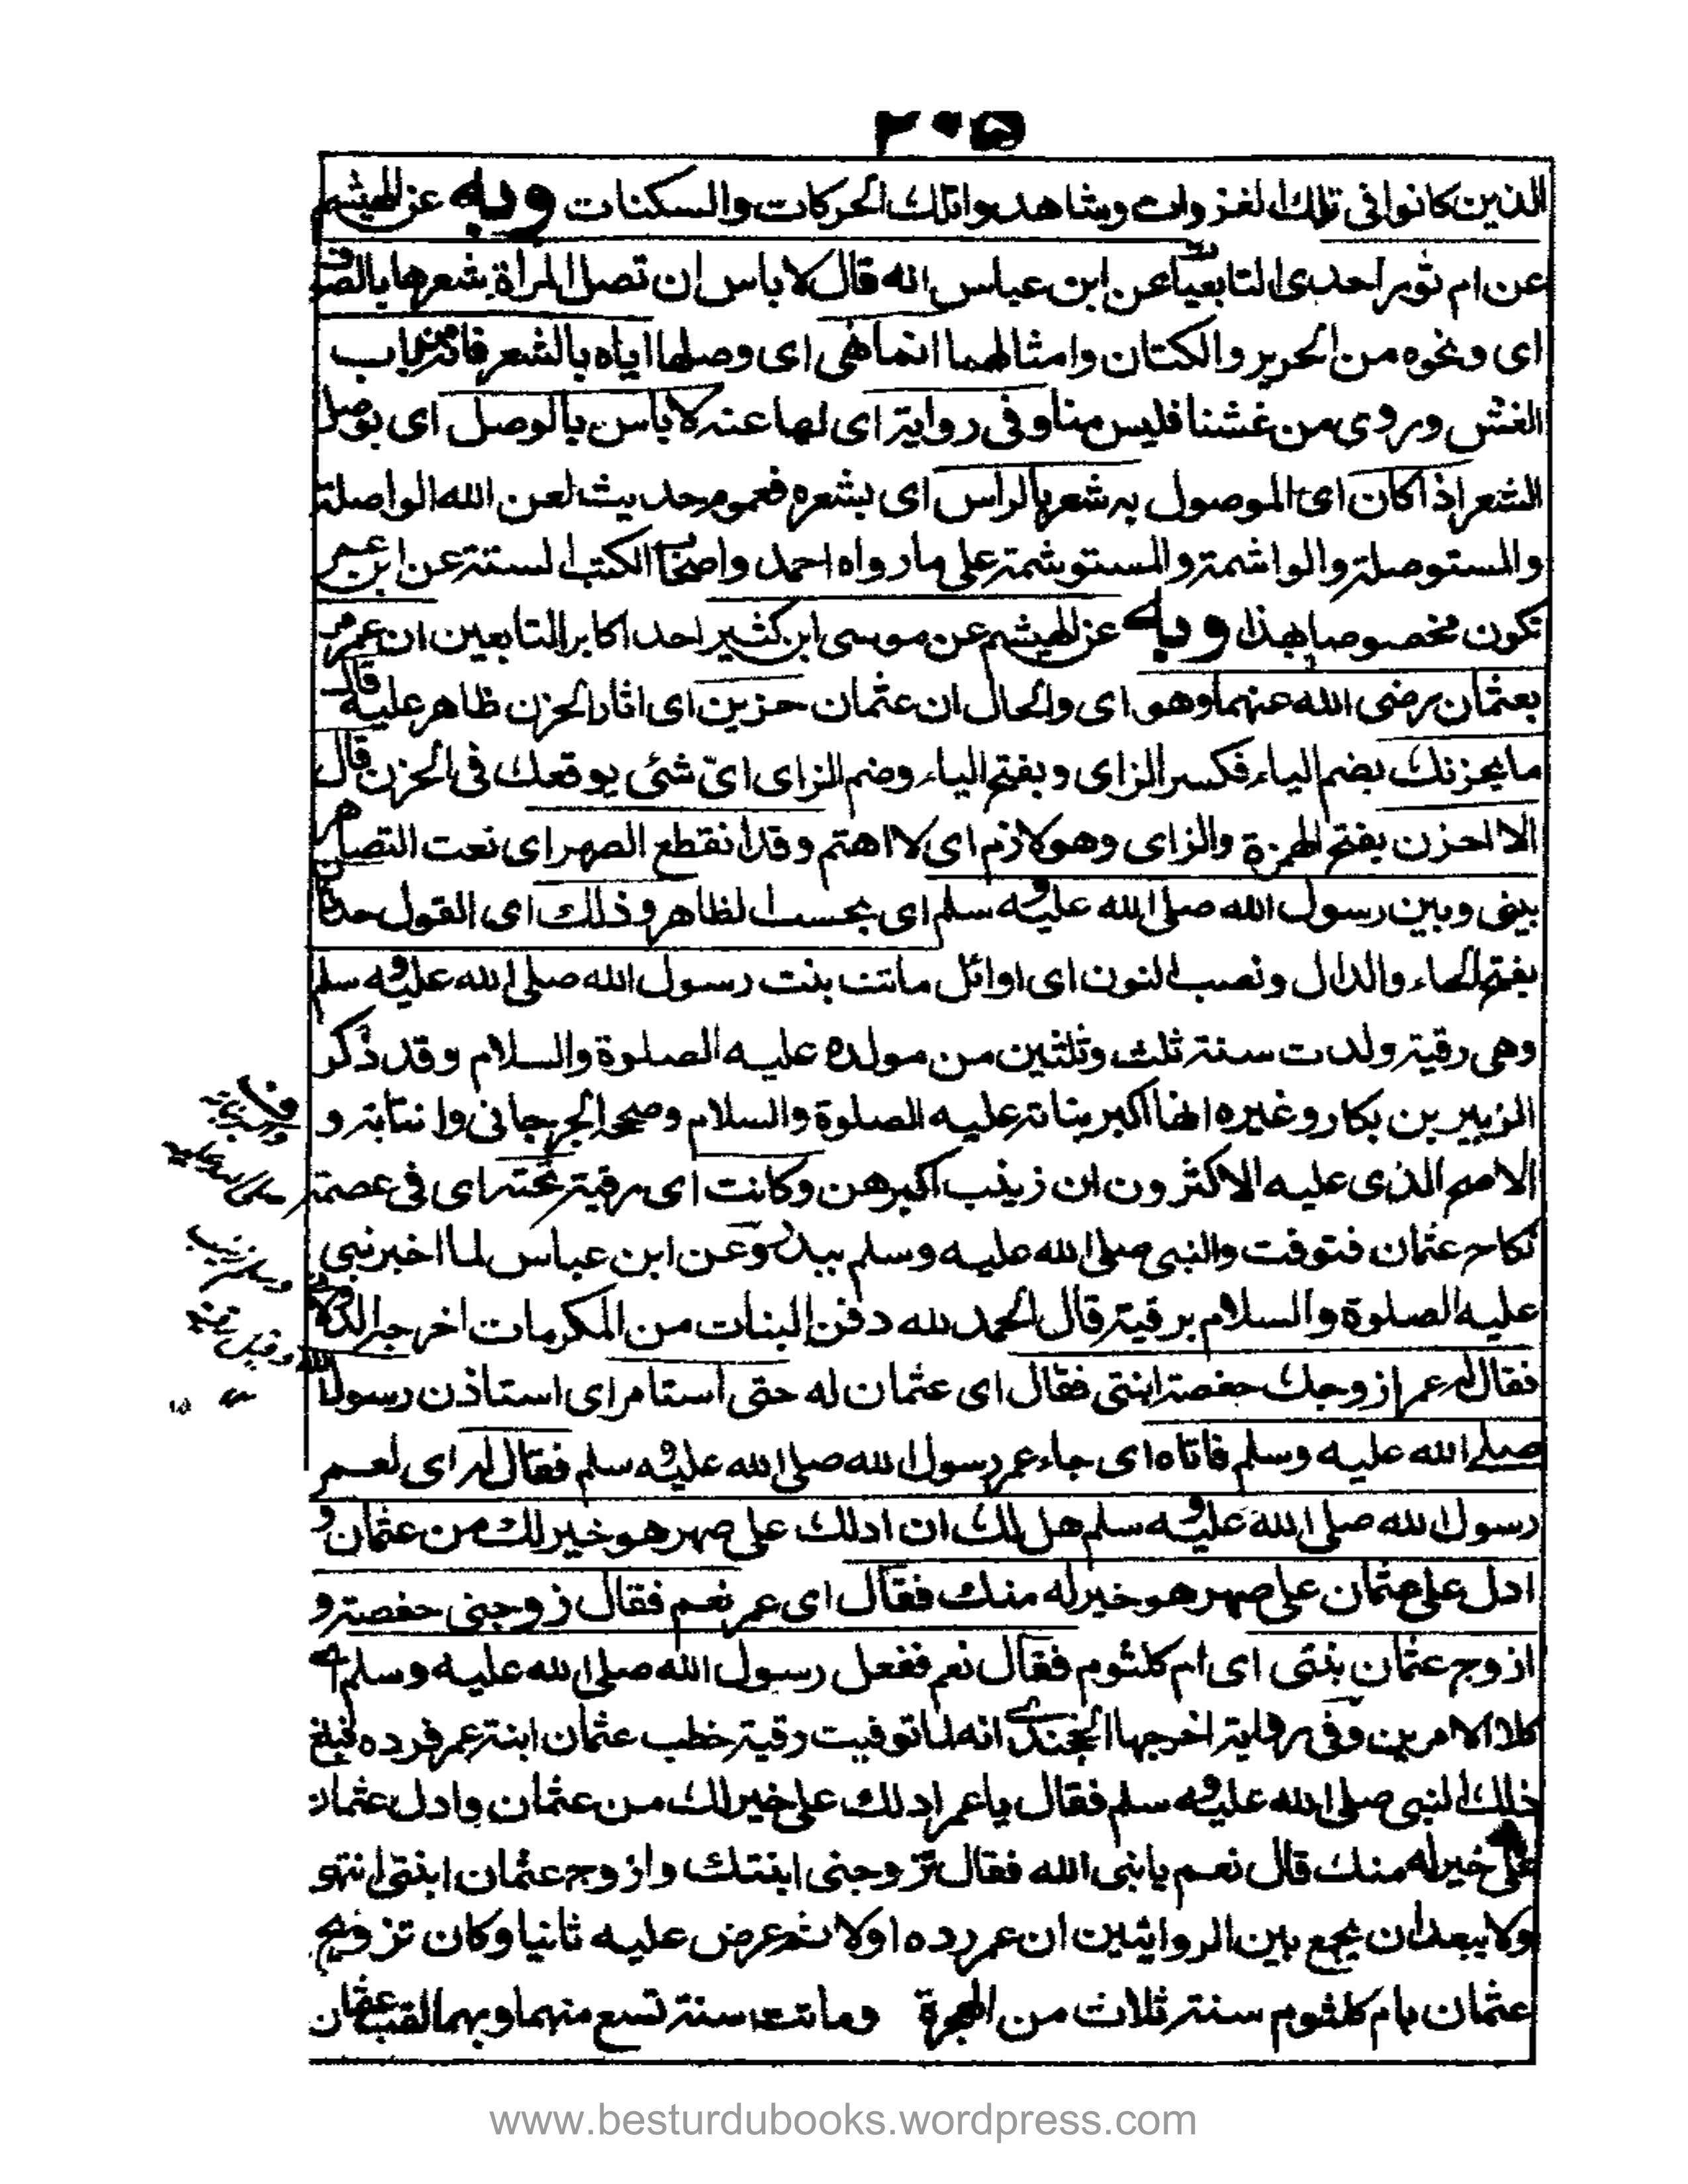 ٢٠٥
الذين كانوا فى تلك الغزوات وشاهدوا تلك الحركات والسكنات وبه عن الهيثم
عن ام ثور احدى التابعيات عن ابن عباس انه قال لا باس ان تصل المراة شعرها بالصوف
اى ونحوه من الحرير والكتان وامثالهما انما نهى اى وصلها اياه بالشعر فانه من باب
الغش وروى من غشنا فليس منا وفى رواية اى لها عنه لا باس بالوصل اى بوصل
الشعر اذا كان اى الموصول به شعر بالراس اى بشعره فعموم حديث لعن الله الواصلة
والمستوصلة والواشمة والمستوشمة على ما رواه احمد واصحاب الكتب الستة عن ابن عمر
تكون مخصوصا بهذا وبه عن الهيثم عن موسى ابن كثير احد اكابر التابعين ان عمر مر
بعثمان رضى الله عنهما وهو اى والحال ان عثمان حزين اى اثار الحزن ظاهر عليه قال
ما يحزنك بضم الياء فكسر الزاى وبفتح الياء وضم الزاى اىّ شئى يوقعك فى الحزن قال
الا احزن بفتح الهمزة والزاى وهو لازم اى لا اهتم وقد انقطع الصهر اى نعت التصاهر
بينى وبين رسول الله صلى الله عليه وسلم اى بحسب الظاهر وذلك اى القول حدثان
بفتح الحاء والدال ونصب النون اى اوائل ماتت بنت رسول الله صلى الله عليه وسلم
وهى رقية ولدت سنة ثلث وثلثين من مولده عليه الصلوة والسلام وقد ذكر
الزبير بن بكار وغيره انها اكبر بناته عليه الصلوة والسلام وصححه الجرجانى والنسابة و
الاصح الذى عليه الاكثرون ان زينب اكبرهن وكانت اى رقية تحته اى فى عصمة
نكاح عثمان فتوفت والنبى صلى الله عليه وسلم ببدر وعن ابن عباس لما اخبر نبى
عليه الصلوة والسلام برقية قال الحمد لله دفن البنات من المكرمات اخرجه الدولابى
فقال له عمر ازوجك حفصة ابنتى فقال اى عثمان له حتى استامر اى استاذن رسول الله
صلى الله عليه وسلم فاتاه اى جاء عمر رسول الله صلى الله عليه وسلم فقال له اى لعمر
رسول الله صلى الله عليه وسلم هل لك ان ادلك على صهر هو خير لك من عثمان و
ادل على عثمان على صهر هو خير له منك فقال اى عمر نعم فقال زوجنى حفصة و
ازوج عثمان بنتى اى ام كلثوم فقال نعم ففعل رسول الله صلى الله عليه وسلم اى
كلا الامرين وفى رواية اخرجها الخجندى انه لما توفيت رقية خطب عثمان ابنة عمر فرده فبلغ
ذلك النبى صلى الله عليه وسلم فقال يا عمر ادلك على خير لك من عثمان وادل عثمان
على خير له منك قال نعم يا نبى الله فقال تزوجنى ابنتك وازوج عثمان ابنتى انتهى
ولا يبعد ان يجمع بين الروايتين ان عمر رده اولا ثم عرض عليه ثانيا وكان تزويج
عثمان بام كلثوم سنة ثلاث من الهجرة وماتت سنة تسع منهما وبهما لقب عثمان
www.besturdubooks.wordpress.com